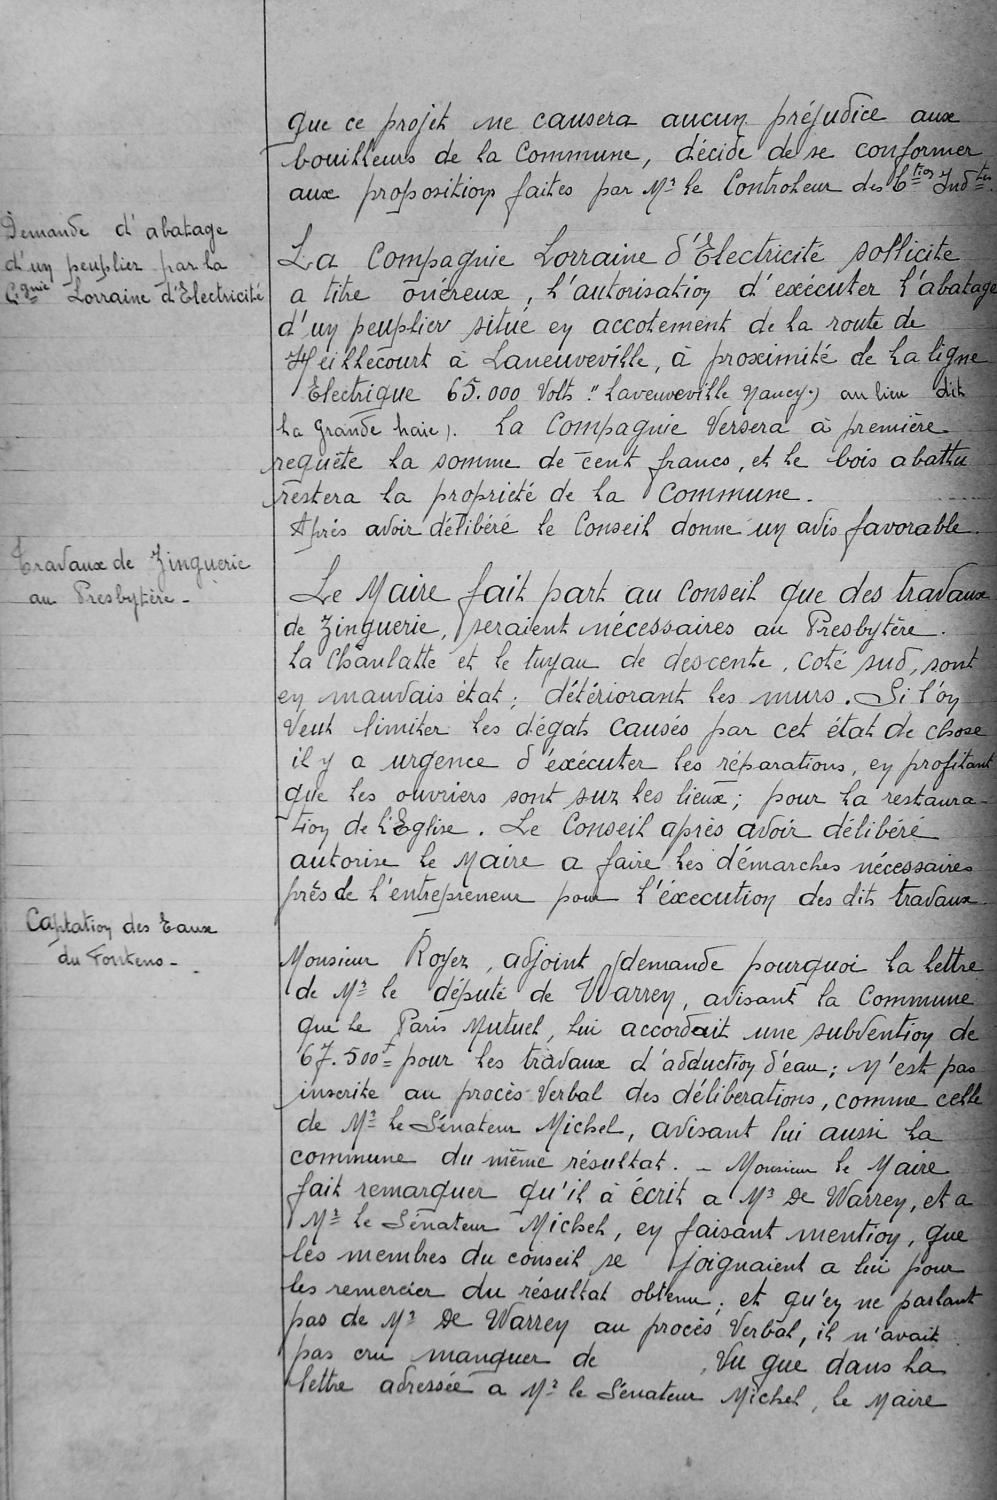 que ce projet ne causera aucun préjudice aux
bouilleurs de la Commune, décide de se conformer
aux propositions faites par Mr le Controleur des Ctions Indtes.
Demande d'abatage
d'un peuplier par la
Cgnie Lorraine d'Electricité
La Compagnie Lorraine d'Electricité sollicite
a titre onéreux, l'autorisation d'exécuter l'abatage
d'un peuplier situé en accotement de la route de
Heillecourt à Laneuveville, à proximité de la ligne
Electrique 65.000 Volts "Laveuveville Nancy") au lieu dit
la Grande haie). La Compagnie Versera à première
requête la somme de cent francs, et le bois abattu
restera la propriété de la Commune.
Après avoir délibéré le Conseil donne un avis favorable.
Travaux de Zinguerie
au Presbytère -
Le Maire fait part au Conseil que des travaux
de Zinguerie, seraient nécessaires au Presbytère.
La Chanlatte et le tuyau de descente, coté sud, sont
en mauvais état; détériorant les murs. Si l'on
veut limiter les dégats causés par cet état de chose
il y a urgence d'éxécuter les réparations, en profitant
que les ouvriers sont sur les lieux; pour la restaura-
tion de l'Eglise. Le Conseil après avoir délibéré
autorise le Maire a faire les démarches nécessaires
près de l'entrepreneur pour l'éxecution des dits travaux
Captation des Eaux
du Fonteno -
Monsieur Royer, adjoint demande pourquoi la lettre
de Mr le député de Warren, avisant la Commune
que le Paris Mutuel, lui accordait une subvention de
67.500f= pour les travaux d'adduction d'eau; n'est pas
inscrite au procès-Verbal des délibérations, comme celle
de Mr le Sénateur Michel, avisant lui aussi la
commune du même résultat. - Monsieur le Maire
fait remarquer qu'il à écrit a Mr De Warren, et a
Mr le Sénateur Michel, en faisant mention, que
les membres du conseil, se joignaient a lui pour
les remercier du résultat obtenu; et qu'en ne parlant
pas de Mr De Warren au procès Verbal, il n'avait
pas cru manquer de , Vu que dans la
lettre adressée a Mr le Sénateur Michel, le Maire